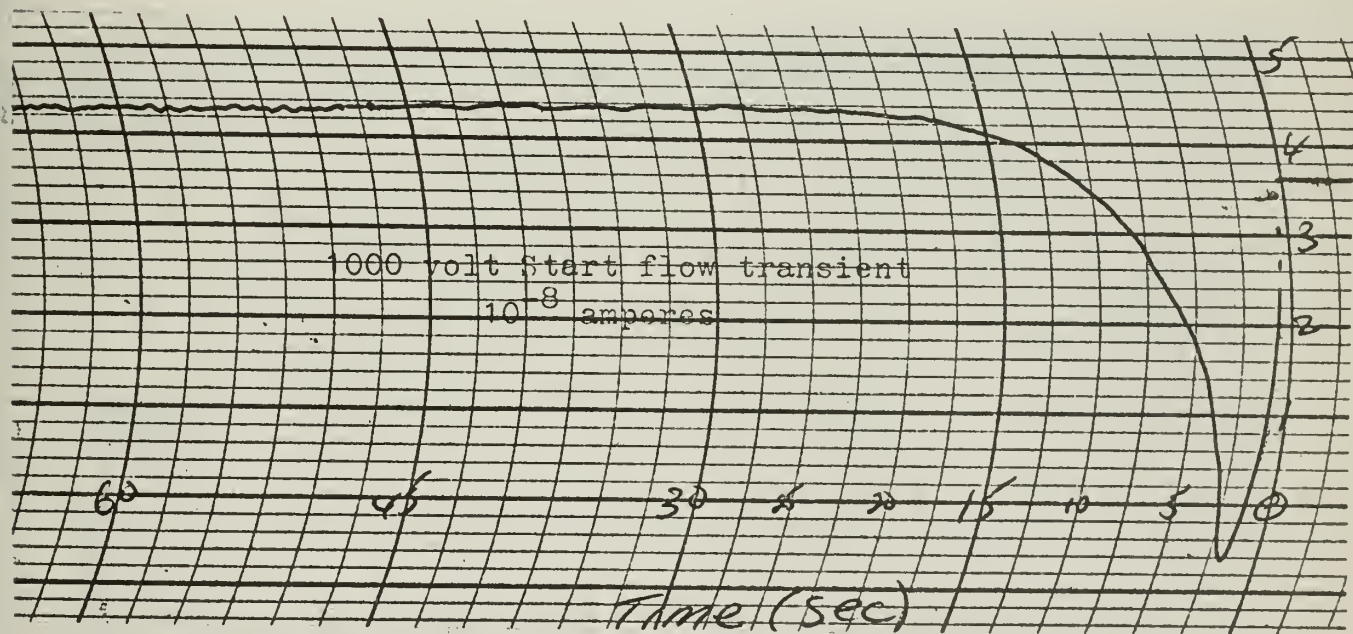 5
4
3
1000 volt Start flow transient
10-8 amperes
2
60 45 30 25 20 15 10 5 0
Time (sec)